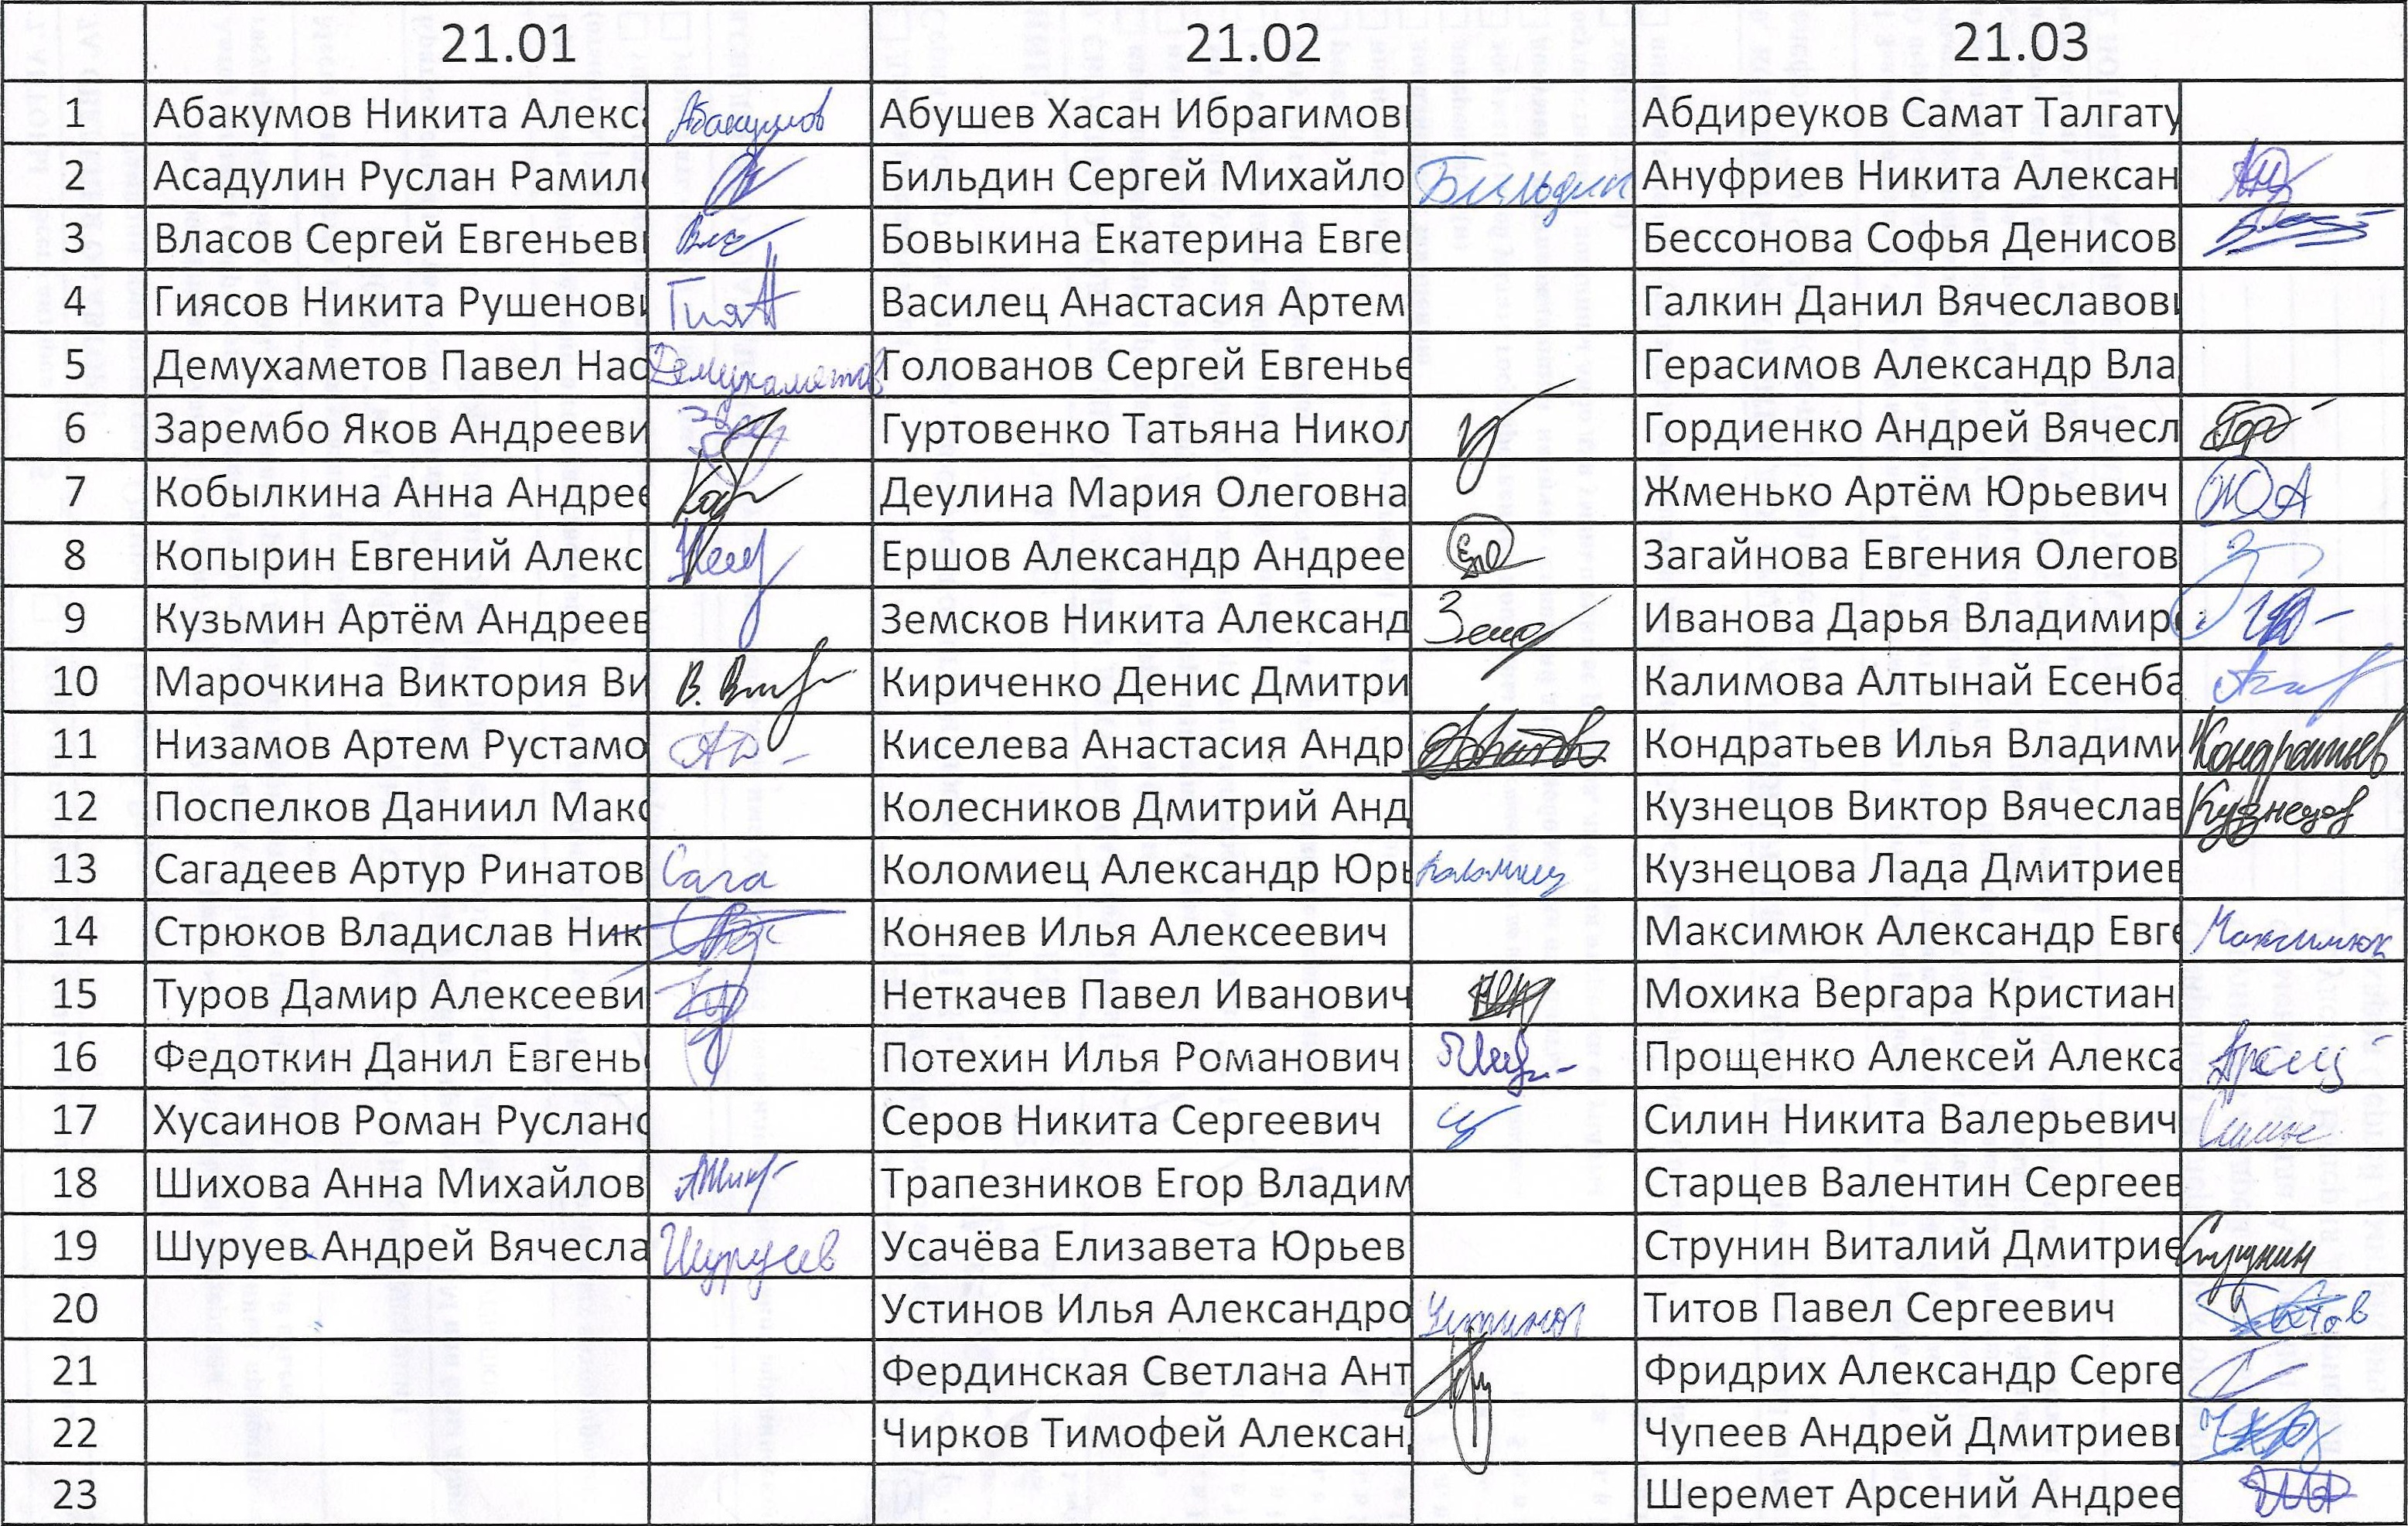 21.01 21.02 21.03
1 Абакумов Никита Алекс Абакумов Абушев Хасан Ибрагимов Абдиреуков Самат Талгату
2 Асадулин Руслан Рамил Бильдин Сергей Михайло Бильдин Ануфриев Никита Алексан
3 Власов Сергей Евгеньев Вла Бовыкина Екатерина Евге Бессонова Софья Денисов
4 Гиясов Никита Рушенов Гия Василец Анастасия Артем Галкин Данил Вячеславов
5 Демухаметов Павел Нас Демухаметов Голованов Сергей Евгенье Герасимов Александр Вла
6 Зарембо Яков Андрееви Гуртовенко Татьяна Никол Гордиенко Андрей Вячесл Гор
7 Кобылкина Анна Андрее Деулина Мария Олеговна Жменько Артём Юрьевич ЖЮА
8 Копырин Евгений Алекс Ершов Александр Андрее Загайнова Евгения Олегов
9 Кузьмин Артём Андреев Земсков Никита Александ Зем Иванова Дарья Владимир
10 Марочкина Виктория Ви Кириченко Денис Дмитри Калимова Алтынай Есенба
11 Низамов Артем Рустамо Киселева Анастасия Андр Кондратьев Илья Владими Кондратьев
12 Поспелков Даниил Мак Колесников Дмитрий Анд Кузнецов Виктор Вячеслав Кузнецов
13 Сагадеев Артур Ринатов Сага Коломиец Александр Юр Коломиец Кузнецова Лада Дмитриев
14 Стрюков Владислав Ник Коняев Илья Алексеевич Максимюк Александр Евге Максимюк
15 Туров Дамир Алексееви Неткачев Павел Иванович Мохика Вергара Кристиан
16 Федоткин Данил Евгень Потехин Илья Романович Прощенко Алексей Алекса
17 Хусаинов Роман Руслан Серов Никита Сергеевич Силин Никита Валерьевич Силин
18 Шихова Анна Михайлов Трапезников Егор Владим Старцев Валентин Сергеев
19 Шуруев Андрей Вячесла Шуруев Усачёва Елизавета Юрьев Струнин Виталий Дмитрие Струнин
20 Устинов Илья Александро Устинов Титов Павел Сергеевич Титов
21 Фердинская Светлана Ант Фридрих Александр Серге
22 Чирков Тимофей Алексан Чупеев Андрей Дмитриев
23 Шеремет Арсений Андрее